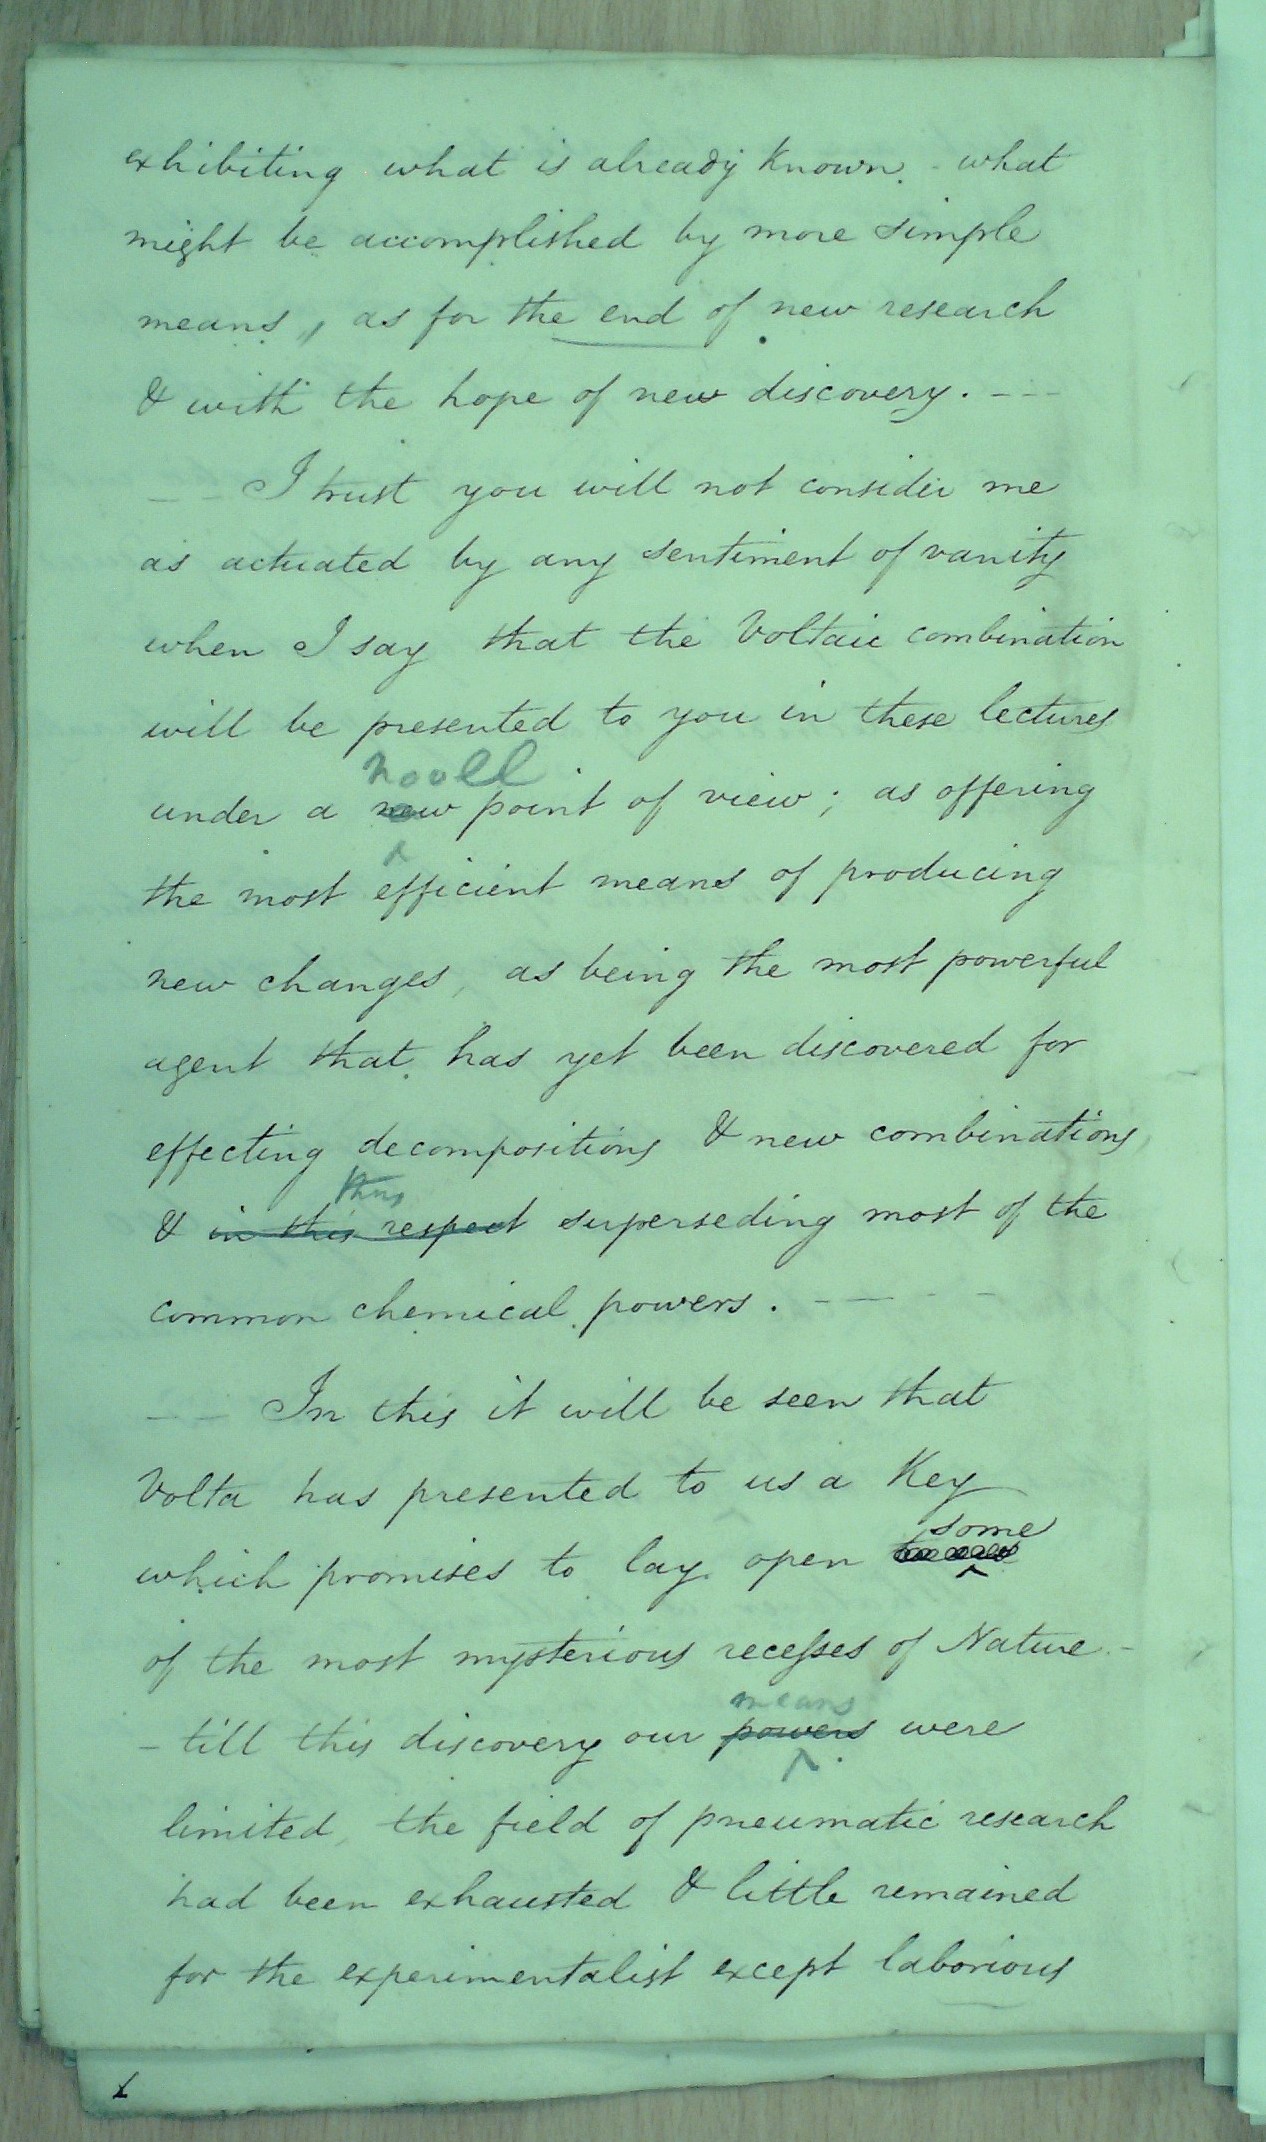 exhibiting what is already known. - what
might be accomplished by more simple
means,, as for the end of new research
& with the hope of new discovery. - - -
- - I trust you will not consider me
as actuated by any sentiment of vanity
when I say that the Voltaic combination
will be presented to you in these lectures
novel
under a new point of view; as offering
the most efficient means of producing
new changes, as being the most powerful
agent that has yet been discovered for
effecting decompositions & new combinations,
thus
& in this respect superseding most of the
common chemical powers. - - - -
- - In this it will be seen that
Volta has presented to us a Key
some
which promises to lay open
of the most mysterious recesses of Nature. -
means
- till this discovery our powers were
limited, the field of pneumatic research
had been exhausted & little remained
for the experimentalist except laborious